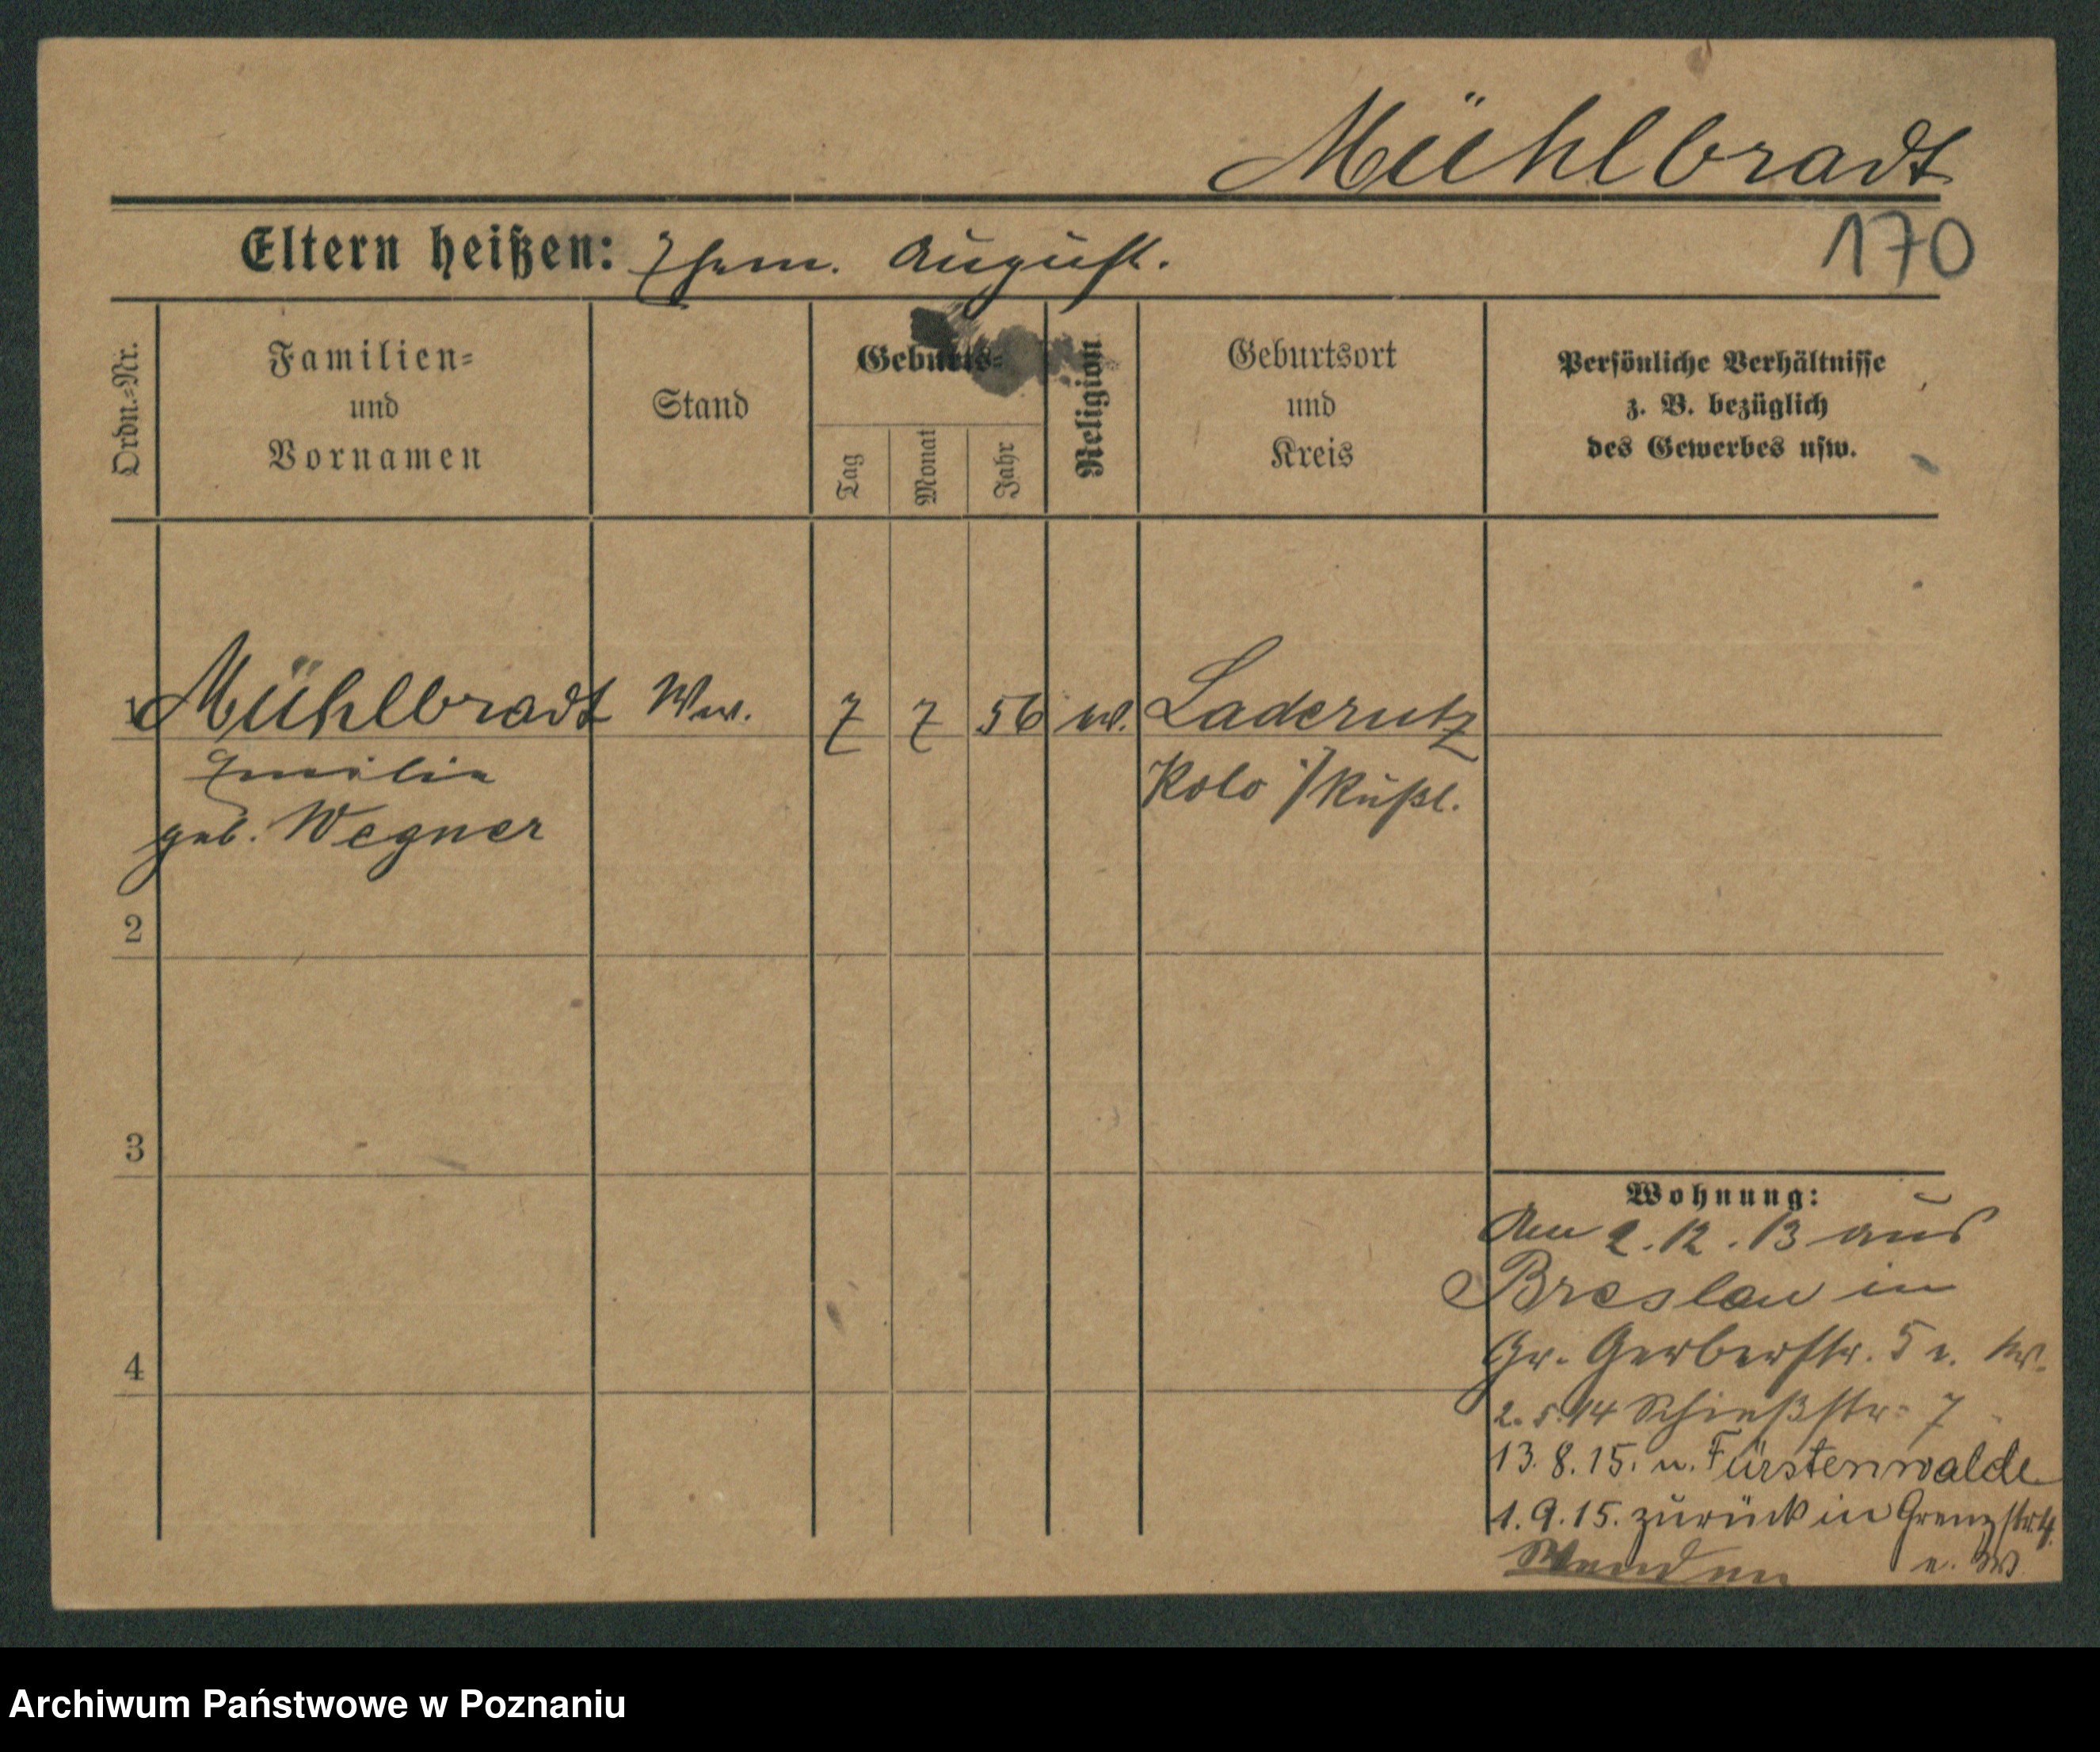 Mühlbradt
170
Eltern heißen: Ehem. August.
Ordn.=Nr.
Familien=
und
Vornamen
Stand
Geburts=
Tag
Monat
Jahr
Religion
Geburtsort
und
Kreis
Persönliche Verhältnisse
z. B. bezüglich
des Gewerbes usw.
1 Mühlbradt Ww. 7 7 56 ev. Laderutz
Emilie Kolo i/Rußl.
geb. Wegner
2
3
4
Wohnung:
Am 2.12.13 aus
Breslau in
Gr. Gerberstr. 5
2.5.14 Schießstr. 7
13.8.15. n. Fürstenwalde
1.9.15. zurück in Grenzstr. 4.
Wenden
Archiwum Państwowe w Poznaniu